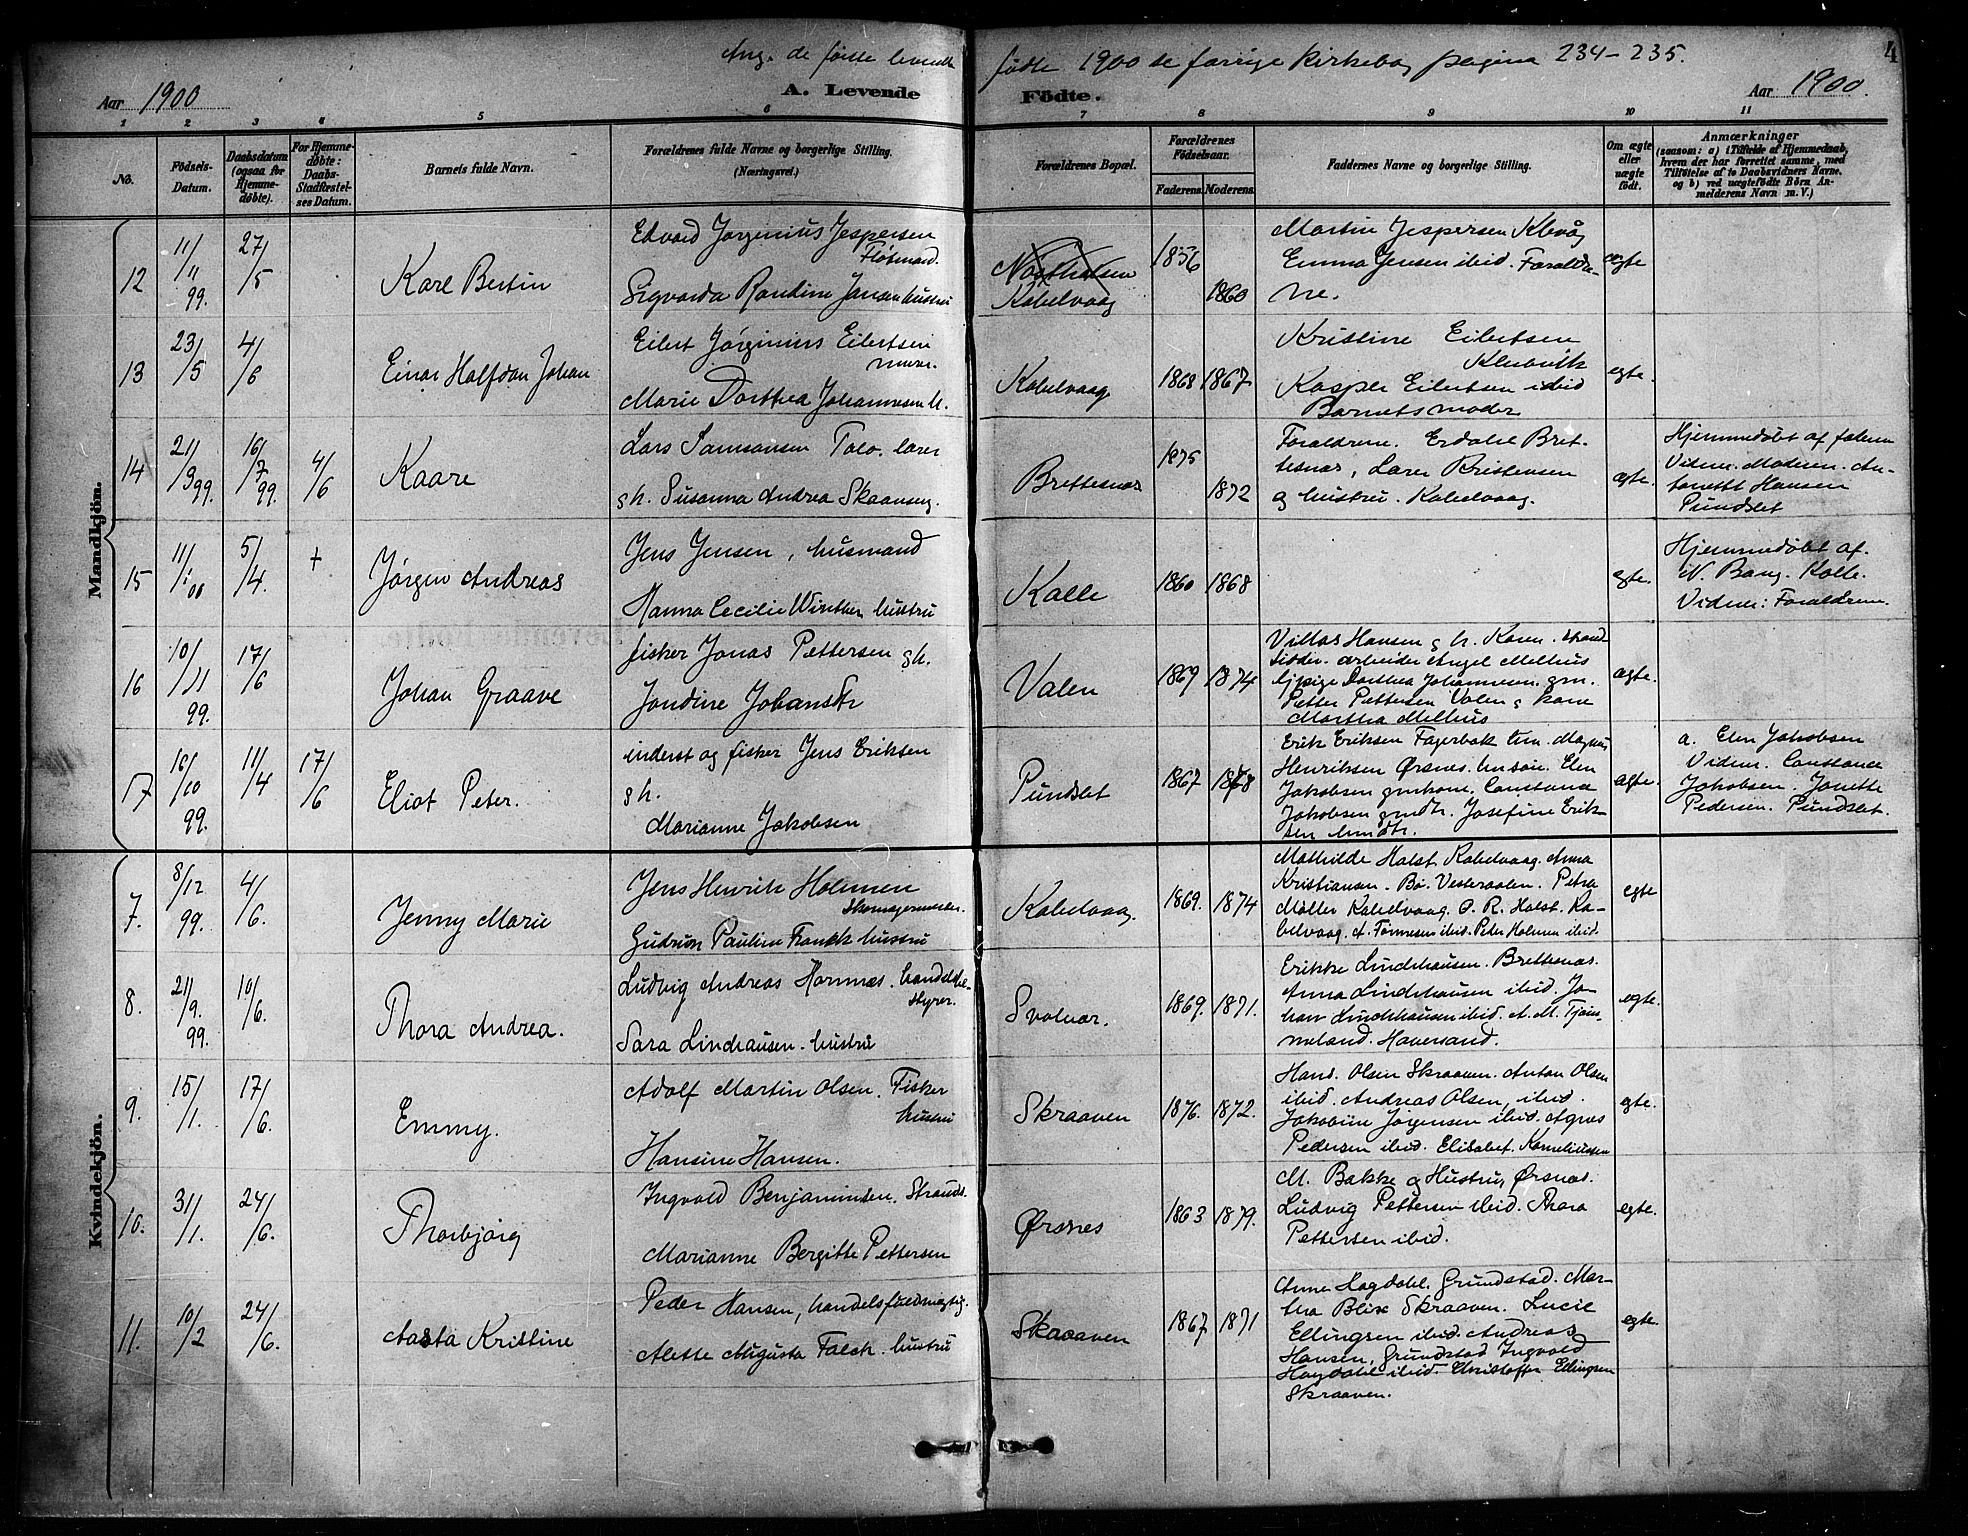 Ang. de første levende fødte 1900 se forrige kirkebog pagina 234-235.
4
Aar 1900
A. Levende Födte.
Aar 1900.
1 2 3 4 5 6 7 8 9 10 11
No.
Födsels-Datum.
Daabsdatum (ogsaa for Hjemmedöbte).
For Hjemmedöbte: Daabs-Stadfæstelses Datum.
Barnets fulde Navn.
Forældrenes fulde Navne og borgerlige Stilling.
(Næringsvei.)
Forældrenes Bopæl.
Forældrenes Födselsaar.
Faderens. Moderens.
Faddernes Navne og borgerlige Stilling.
Om ægte eller uægte födt.
Anmærkninger
(saasom: a) i Tilfælde af Hjemmedaab, hvem der har forrettet samme, med Tilföielse af to Daabsvidners Navne, og b) ved uægtefödte Börn Anmelderens Navn m. V.)
Mandkjön.
12
11/11 99.
27/5
Karl Bertin
Edvard Jørgenius Jespersen
Fløtmand.
Sigvarda Randine Jansen hustru
Kabelvaag
1856
1860
Martin Jespersen Klevåg
Emma Jensen ibid. Foreldre-
ne.
egte
13
23/5
4/6
Einar Halfdan Johan
Eilert Jørginius Eilertsen
murer.
Marie Dorthea Johannesen h.
Kabelvaag
1868 1867
Kristine Eilertsen
Kasper Eilertsen ibid
Barnets moder
egte.
14
21/3 99.
16/7 99.
4/6
Kaare
Lars Samsonsen Tolo. lærer
g h. Susanna Andrea Skaanseng.
Brettesnæs
1875
1872
Foreldrene. Erdahl Bret-
tesnæs, Lærer Kristensen
og hustru. Kabelvaag.
egte.
Hjemmedøbt af faderen
Vidner. Moderen. An-
tonette Hansen
Pundslet
15
11/1 00
5/4.
+
Jørgen Andreas
Jens Jensen, husmand
Hanna Cecilie Winther hustru
Kalle
1860 1868
egte.
Hjemmedøbt af.
N. Bang. Kalle.
Vidner: Foreldrene.
16
10/11 99.
17/6
Johan Graave
fisker Jonas Pettersen g h.
Jondine Johansdtr
Valen
1869 1874
Hansen g h. Karen.
arbeider Angel Melhus
Dorthea Johannesen. gm.
Petter Pettersen Valen g kone
Martha Melhus
egte.
17
16/10 99.
11/4
17/6
Eliot Peter.
inderst og fisker Jens Eriksen
g h.
Marianne Jakobsen
Pundslet
1867 1878
Erik Eriksen Fagerbak tm. Magnus
Henriksen Ørsnes. Elen
Jakobsen gmkone. Constance
Jakobsen gmdtr. Josefine Erik-
sen
egte.
a. Elen Jakobsen
Vidner. Constance
Jakobsen. Jonette
Pedersen. Pundslet.
Kvindekjön.
7.
8/12 99.
4/6.
Jenny Marie
Jens Henrik Holmen
Skomagermester.
Gudrun Pauline Franck hustru
Kabelvaag.
1869. 1874
Mathilde Holst Kabelvaag. Anna
Kristiansen. Bø. Vesteraalen. Petra
Møller Kabelvaag. O. R. Holst. Ka-
belvaag. A. Tønnesen ibid. Peter Holmen ibid.
egte
8.
21/9. 99.
10/6.
Thora Andrea.
Ludvig Andreas Hornnæs. handelsbe-
styrer.
Sara Lindhausen. hustru
Svolvær.
1869. 1871.
Erikke Lindhausen. Brettesnæs.
Anna Lindhausen ibid. Jo-
han Lindhausen ibid. A. M. Tjøns-
meland. Haversand.
egte.
9.
15/1.
17/6.
Emmy.
Adolf Martin Olsen. Fisker
hustru
Hansine Hansen.
Skraaven
1876. 1872.
Hans. Olsen Skraaven. Anton Olsen
ibid. Andreas Olsen, ibid.
Jakobine Jørgensen ibid. Agnes
Pedersen ibid. Elisabet. Korneliussen
egte.
10.
31/1.
24/6.
Thorbjørg
Ingvald Benjaminsen. Strands.
Marianne Bergitte Pettersen
Ørsnes
1863 1879.
M. Bakke og Hustru, Ørsnæs.
Ludvig Pettersen ibid. Thora
Pettersen ibid.
egte.
11.
10/2
24/6.
Aasta Kristine
Peder Hansen, handelsfuldmægtig.
Alette Augusta Falch. hustru
Skraaven
1867 1871
Anne Hagdahl. Grundstad. Mar-
tha Blix Skraaven. Lucie
Ellingsen ibid. Andreas
Hansen, Grundstad Ingvald
Hagdahl ibid. Christoffer Ellingsen
Skraaven.
egte.